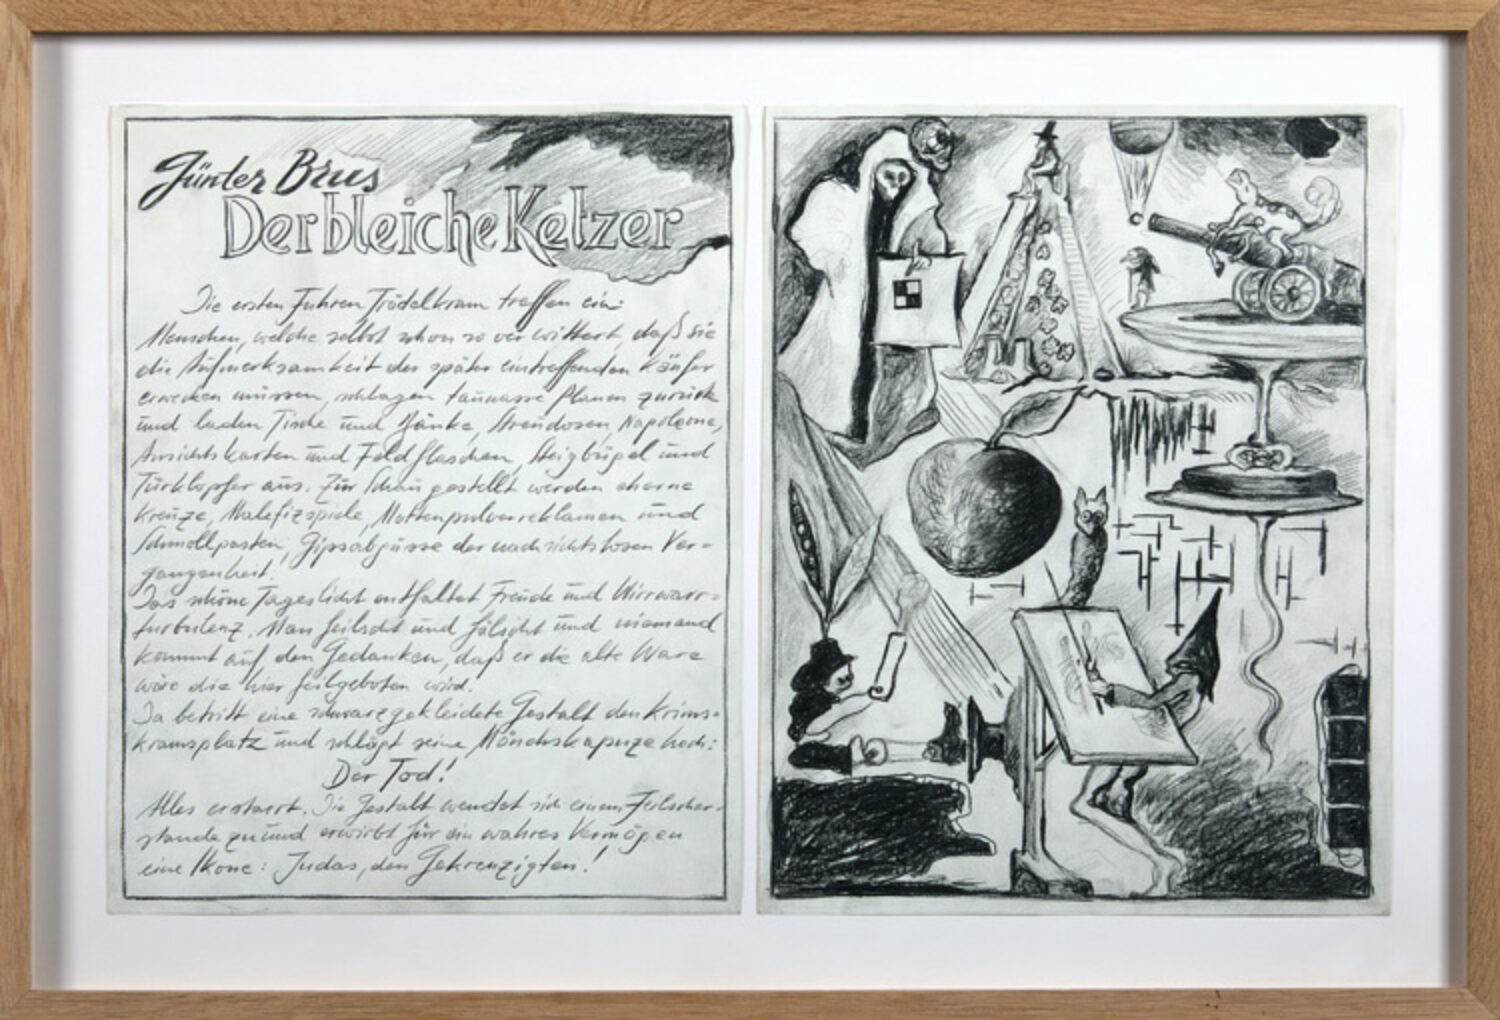 Günter Brus
Der bleiche Ketzer
Die ersten Fuhren Trödelkram treffen ein:
Menschen, welche selbst schon so verwittert, daß sie
die Aufmerksamkeit der später eintreffenden Käufer
erwecken müssen, schlagen taunasse Planen zurück
und laden Tische und Bänke, Streudosen, Napoleone,
Ansichtskarten und Feldflaschen, Steigbügel und
Türklopfer aus. Zur Schau gestellt werden eherne
Kreuze, Malefizspiele, Mottenpulverreklamen und
Schmollpasten, Gipsabgüsse der nachsichtslosen Ver-
gangenheit!
Das schöne Tageslicht entfaltet Freude und Wirrwarr-
turbulenz. Man feilscht und fälscht und niemand
kommt auf den Gedanken, daß er die alte Ware
wäre die hier feilgeboten wird.
Da betritt eine schwarzgekleidete Gestalt den Krims-
kramsplatz und schlägt seine Mönchskapuze hoch:
Der Tod!
Alles erstarrt. Die Gestalt wendet sich einem Feilscher-
stande zu und erwirbt für ein wahres Vermögen
eine Ikone: Judas, den Gekreuzigten!